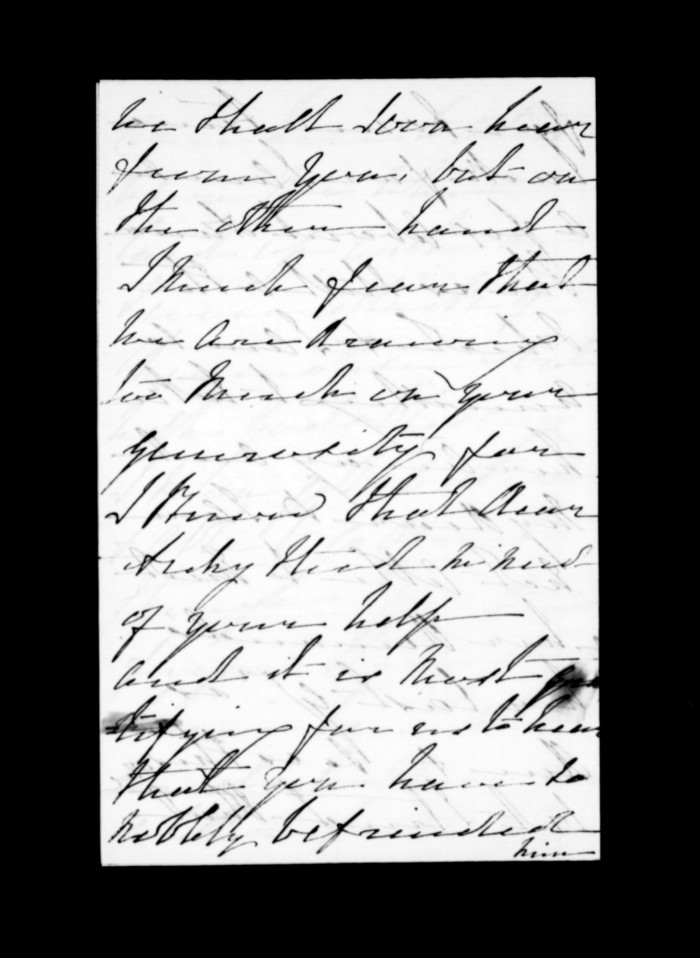 We shall soon hear
from you, but on
the other hand
I much fear that
we are drawing
too much on your
generosity for
I know that dear
Archy stood in need
of your help
and it is most gra
tifying for us to hear
that you have so
nobbly befriended
him